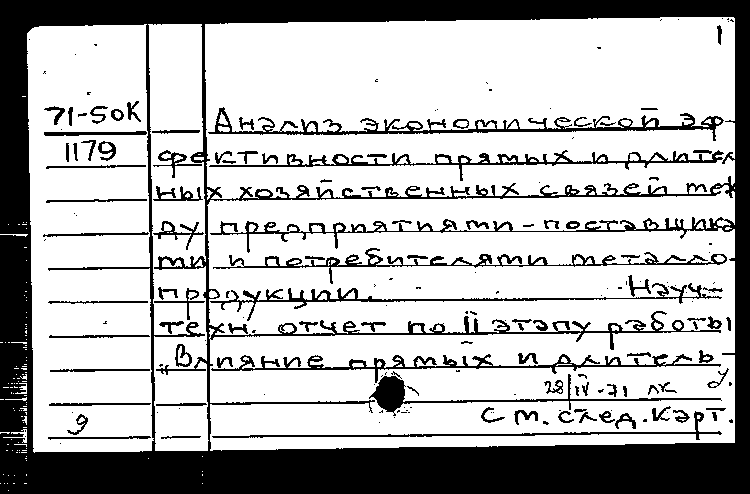 1
71-50К Анализ экономической эф-
1179 фективности прямых и длитель
ных хозяйственных связей меж
ду предприятиями-поставщика
ми и потребителями металло-
продукции. Науч-
техн. отчет по II этапу работы
„Влияние прямых и длитель-
28/IV-71 ЛК У.
9 См. след. карт.